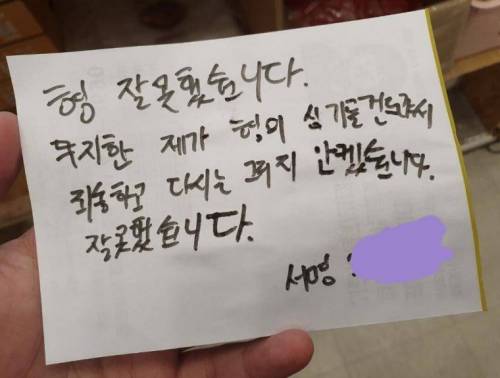 형 잘못했습니다.
무지한 제가 형의 심기를건드려서
죄송하고 다시는 그러지 안겠습니다.
잘못했습니다.
서명 :